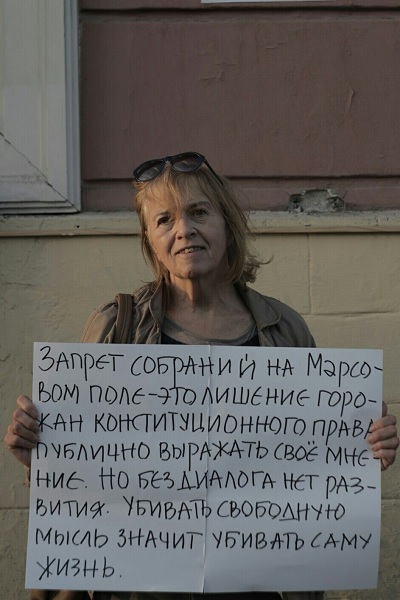 ЗАПРЕТ СОБРАНИЙ НА МАРСО-
ВОМ ПОЛЕ-ЭТО ЛИШЕНИЕ ГОРО-
ЖАН КОНСТИТУЦИОННОГО ПРАВА
ПУБЛИЧНО ВЫРАЖАТЬ СВОЁ МНЕ-
НИЕ. НО БЕЗ ДИАЛОГА НЕТ РАЗ-
ВИТИЯ. УБИВАТЬ СВОБОДНУЮ
МЫСЛЬ ЗНАЧИТ УБИВАТЬ САМУ
ЖИЗНЬ.